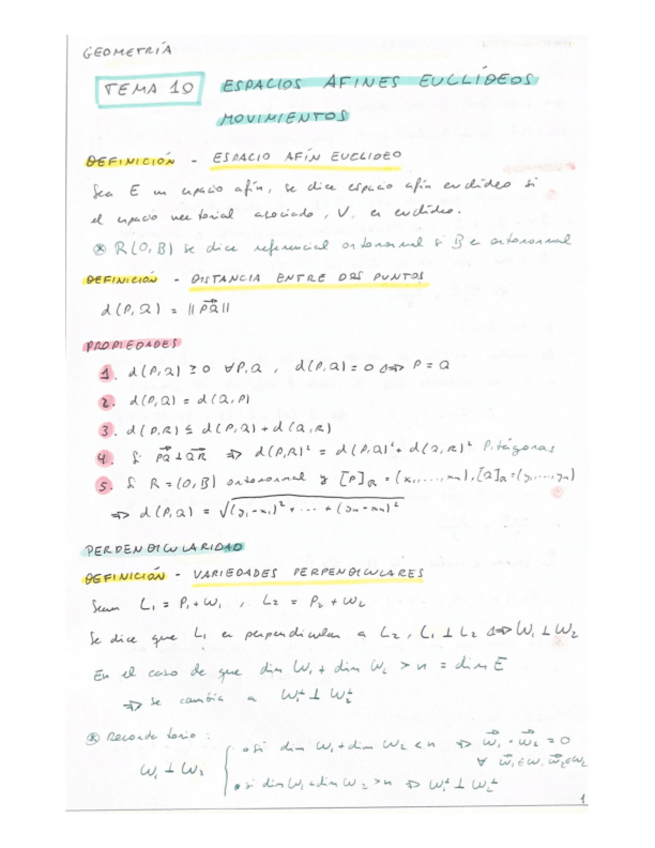 GEOMETRÍA
TEMA 10 ESPACIOS AFINES EUCLÍDEOS
MOVIMIENTOS
DEFINICIÓN - ESPACIO AFÍN EUCLIDEO
Sea E un espacio afín, se dice espacio afín euclídeo si
el espacio vectorial asociado, V, es euclídeo.
⊛ R(O,B) se dice referencial ortonormal si B es ortonormal
DEFINICIÓN - DISTANCIA ENTRE DOS PUNTOS
d(P,Q) = ||PQ||
PROPIEDADES
1. d(P,Q) ≥ 0 ∀P,Q , d(P,Q) = 0 ⟺ P = Q
2. d(P,Q) = d(Q,P)
3. d(P,R) ≤ d(P,Q) + d(Q,R)
4. Si PQ ⊥ QR ⟹ d(P,R)² = d(P,Q)² + d(Q,R)² Pitágoras
5. Si R = (O,B) ortonormal y [P]R = (x₁,...,xn), [Q]R = (y₁,...,yn)
⟹ d(P,Q) = √(y₁-x₁)² + ... + (yn-xn)²
PERPENDICULARIDAD
DEFINICIÓN - VARIEDADES PERPENDICULARES
Sean L₁ = P₁ + W₁ , L₂ = P₂ + W₂
Se dice que L₁ es perpendicular a L₂, L₁ ⊥ L₂ ⟺ W₁ ⊥ W₂
En el caso de que dim W₁ + dim W₂ > n = dim E
⟹ se cambia a W₁⊥ ⊥ W₂⊥
⊛ Recordatorio:
W₁ ⊥ W₂
• si dim W₁ + dim W₂ ≤ n ⟹ w₁ · w₂ = 0
∀ w₁ ∈ W₁, w₂ ∈ W₂
• si dim W₁ + dim W₂ > n ⟹ W₁⊥ ⊥ W₂⊥
1